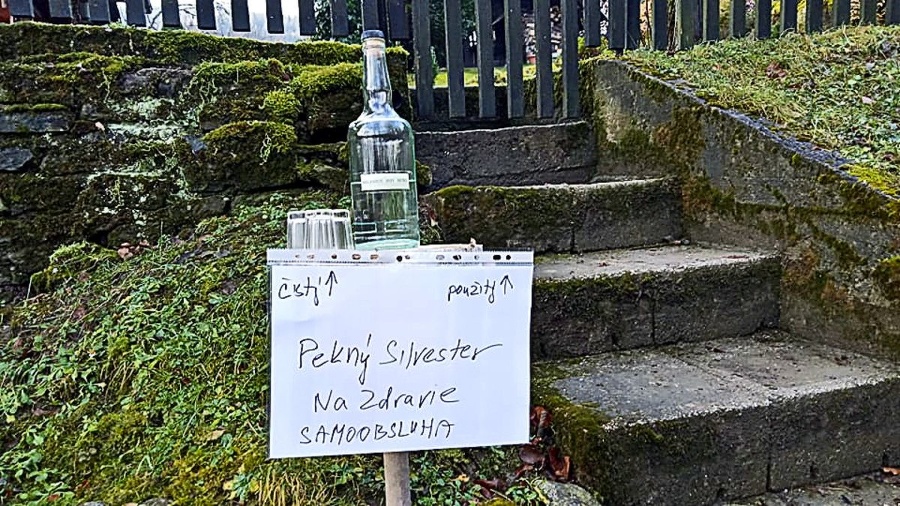 čistý↑ použitý↑
Pekný Silvester
Na Zdravie
SAMOOBSLUHA